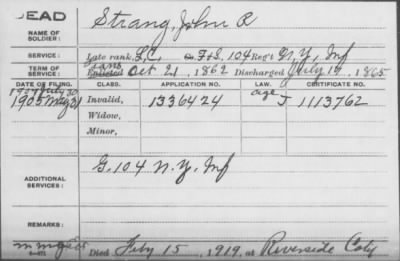 DEAD
NAME OF SOLDIER:
Strang, John R
SERVICE:
Late rank, L.C. Co. F&S, 104 Reg't N.Y. Inf
TERM OF SERVICE:
Enlisted Oct 21, 1862 Discharged July 17, 1865
DATE OF FILING. CLASS. APPLICATION NO. LAW. CERTIFICATE NO.
July 30
1905 May 31 Invalid, 1336424 age J 1113762
Widow,
Minor,
ADDITIONAL SERVICES:
G. 104 N.Y. Inf
REMARKS:
Died Feby 15, 1919, at Riverside Caly